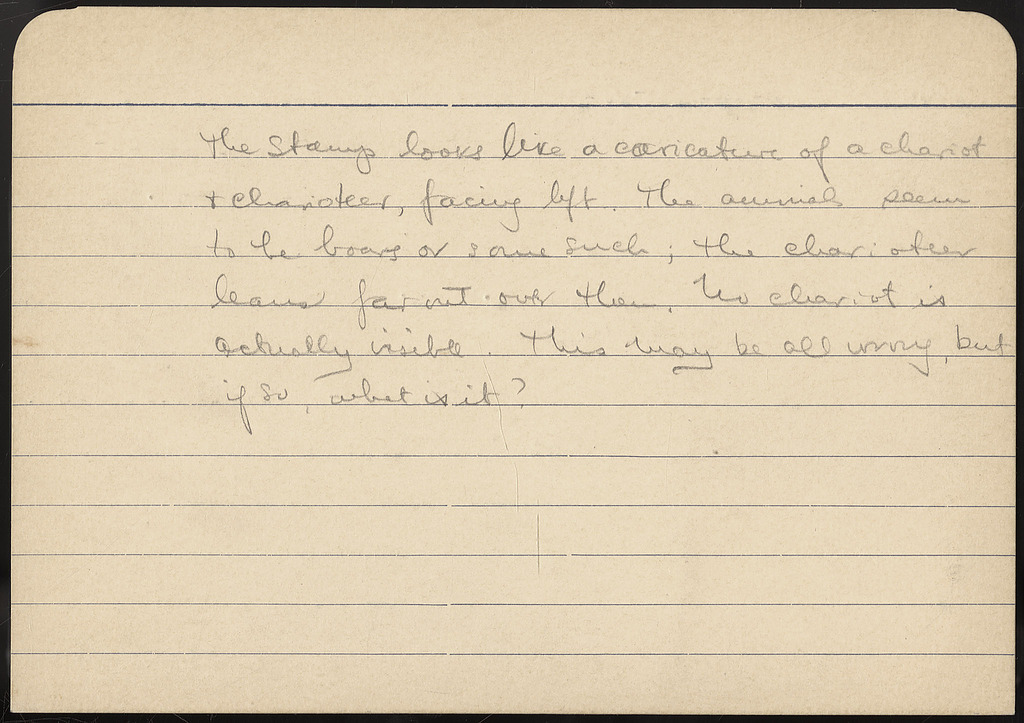 The stamp looks like a caricature of a chariot
+ charioteer, facing left. The animals seem
to be boars or some such; the charioteer
leans far out over them. No chariot is
actually visible. This may be all wrong, but
if so, what is it?